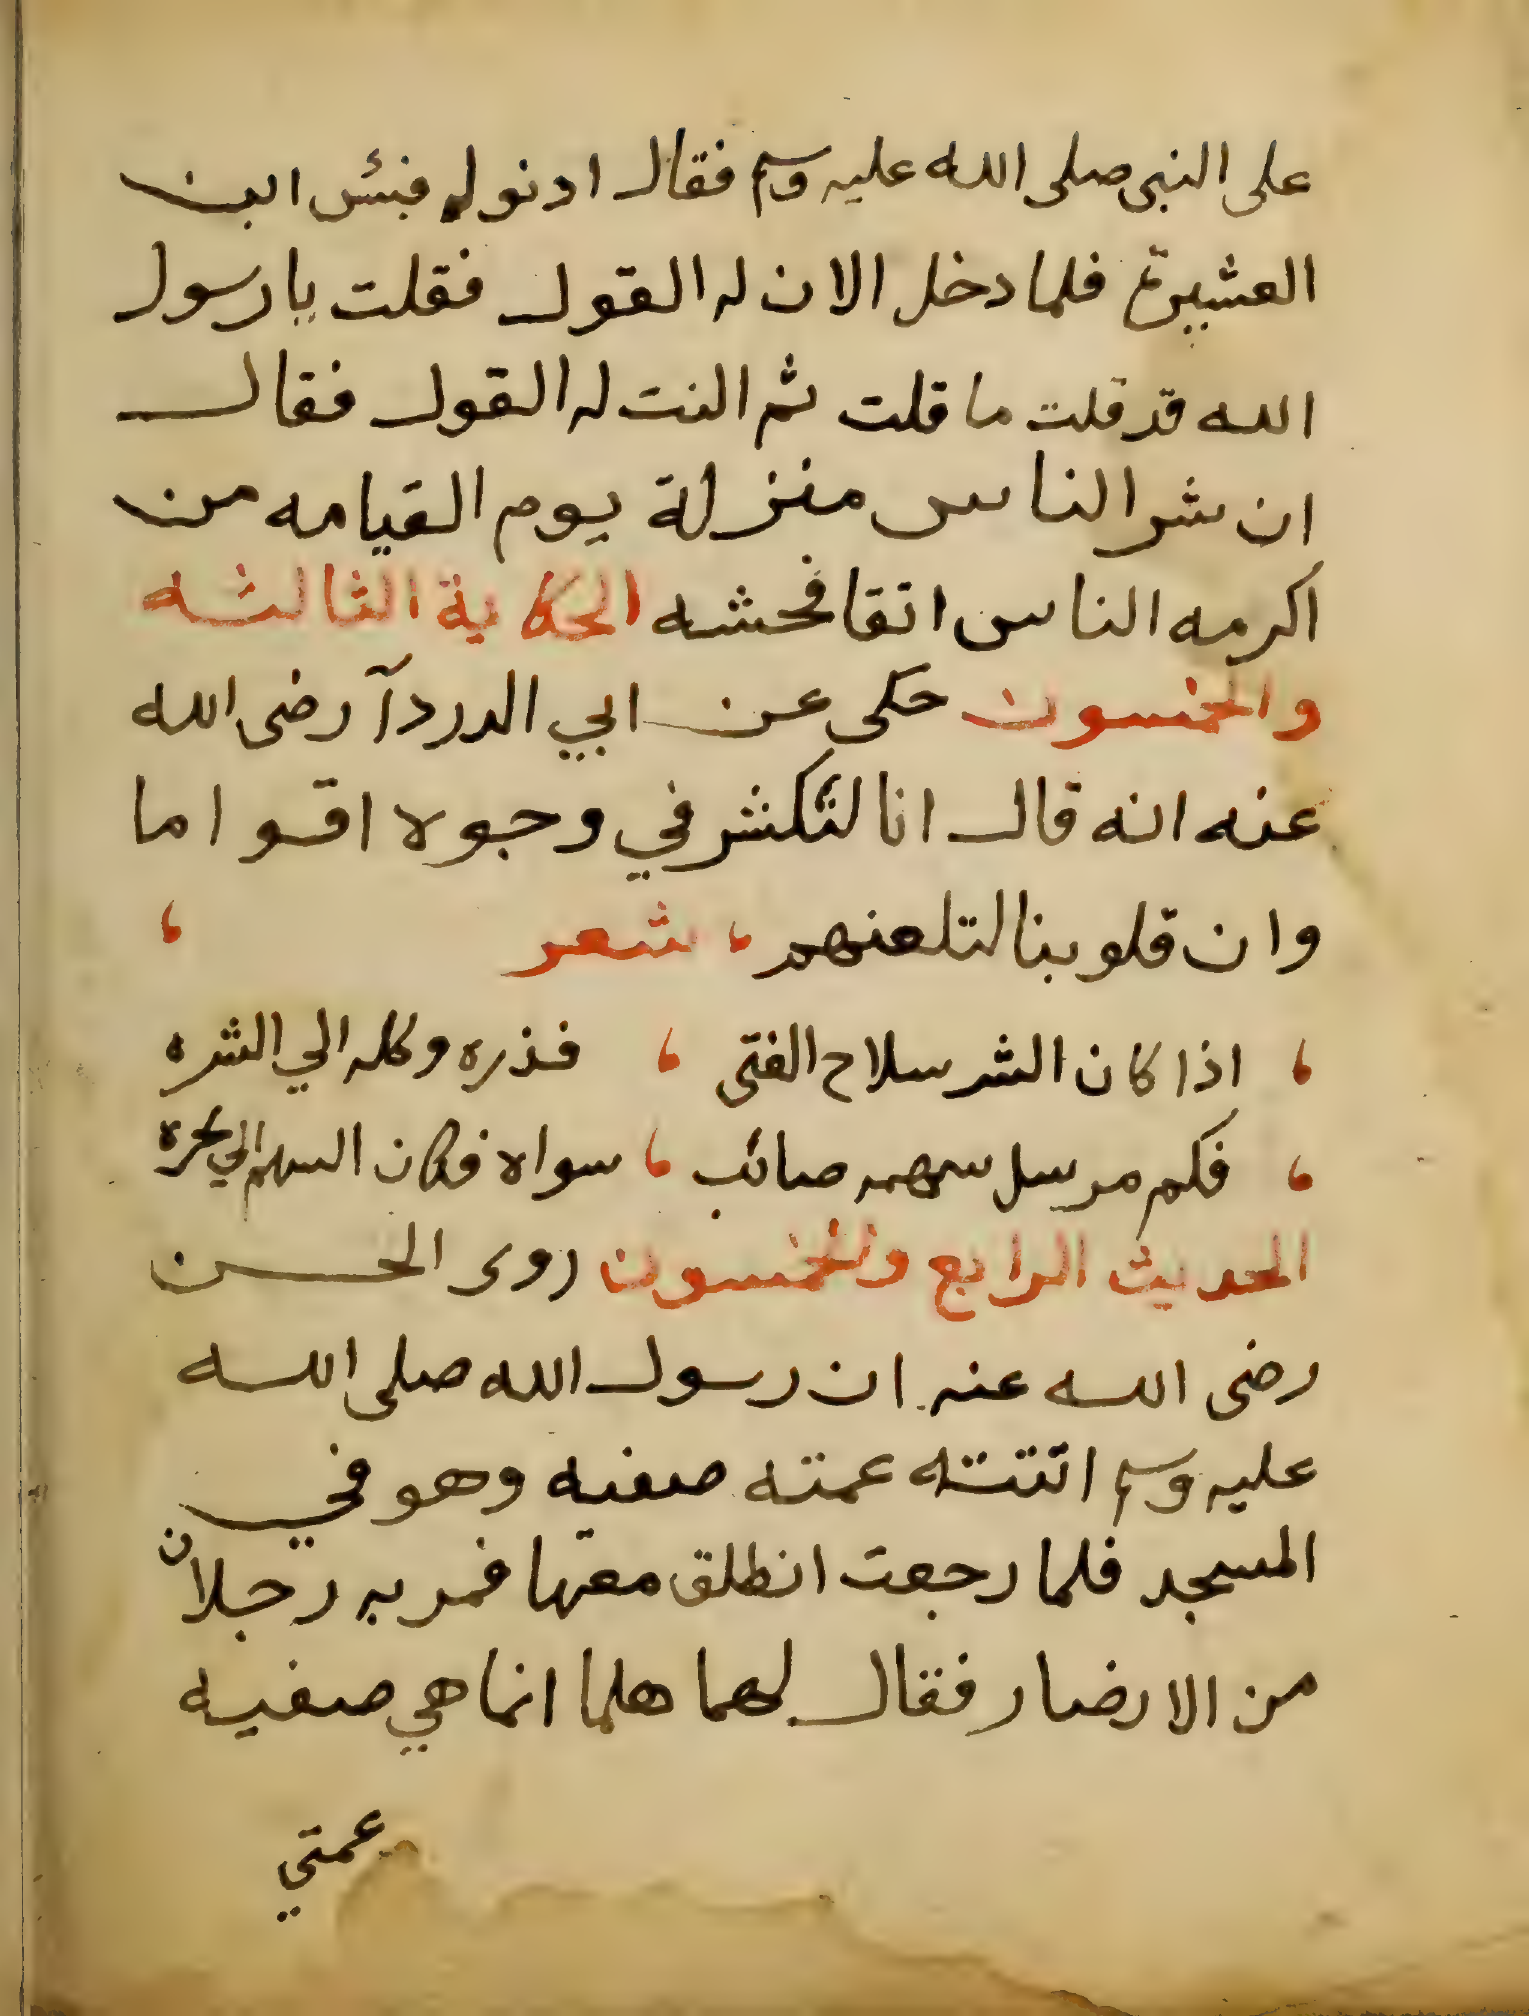 على النبى صلى الله عليه وسم فقال ادنوله فبئس ابن
العشيرة فلما دخل الان له القول فقلت يا رسول
الله قد قلت ما قلت ثم النت له القول فقال
ان شر الناس منزلة يوم القيامه من
اكرمه الناس اتقا فحشه الحكاية الثالثه
والخمسون حكى عن ابي الدردآ رضى الله
عنه انه قال انا لنكشر في وجوه اقواما
وان قلوبنا لتلعنهم ، شعر ،
، اذا كان الشر سلاح الفتى ، فذره وكله الي الشره
، فكم مرسل سهمه صائب ، سواه فكان السهم الي نحره
الحديث الرابع والخمسون روى الحسن
رضى الله عنه ان رسول الله صلى الله
عليه وسم اتتته عمته صفيه وهو في
المسجد فلما رجعت انطلق معها فمر به رجلان
من الارضار فقال لهما هلما انما هي صفيه
عمتي